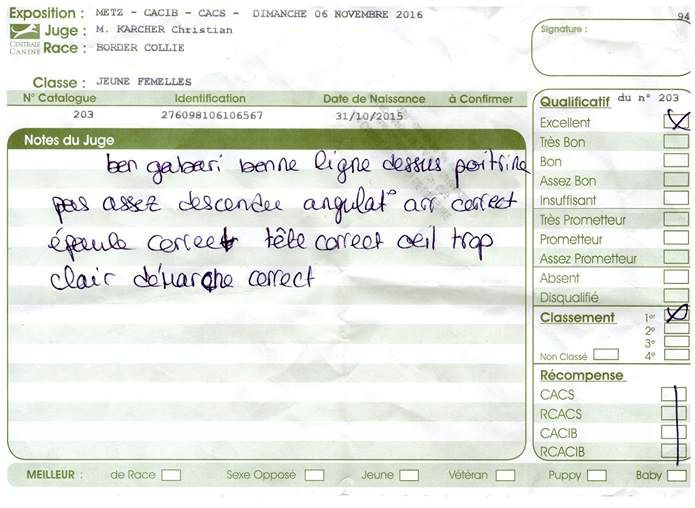 Exposition : METZ - CACIB - CACS - DIMANCHE 06 NOVEMBRE 2016
94
Juge : M. KARCHER Christian
Signature :
CENTRALE CANINE
Race : BORDER COLLIE
Classe : JEUNE FEMELLES
N° Catalogue Identification Date de Naissance à Confirmer
203 276098106106567 31/10/2015
Qualificatif du n° 203
Excellent
Très Bon
Bon
Assez Bon
Insuffisant
Très Prometteur
Prometteur
Assez Prometteur
Absent
Disqualifié
Notes du Juge
bon gabari bonne ligne dessus poitrine
pas assez descendu angulat° arr correct
épaule correct tête correct oeil trop
clair démarche correct
Classement 1er
2e
3e
Non Classé 4e
Récompense
CACS
RCACS
CACIB
RCACIB
MEILLEUR : de Race Sexe Opposé Jeune Vétéran Puppy Baby